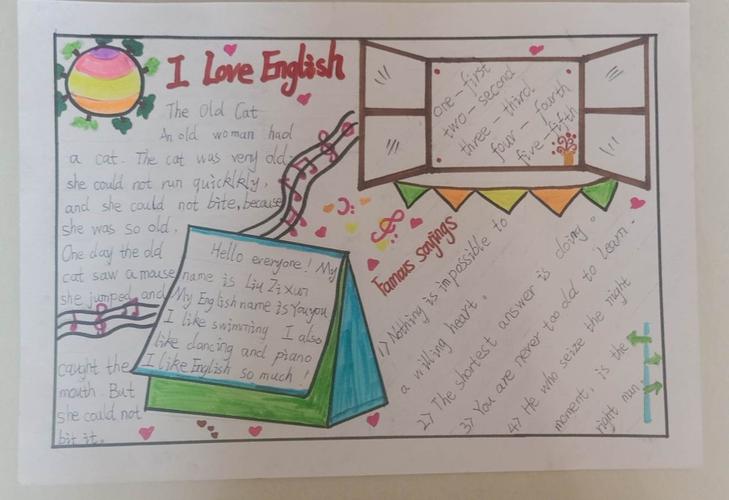 I Love English
The Old Cat
An old woman had
a cat. The cat was very old;
she could not run quicklkly,
and she could not bite, because
she was so old.
One day the old
cat saw a mouse
she jumped and
caught the
mouth. But
she could not
bit it.
Hello everyone! My
name is Liu Zixun
My English name is Youyou
I like swimming I also
like dancing and piano
I like English so much!
one-first
two-second
three-third
four-fourth
five-fifth
Famous sayings
1) Nothing is impossible to
a willing heart.
2) The shortest answer is doing.
3) You are never too old to learn.
4) He who seize the right
moment, is the
right man.